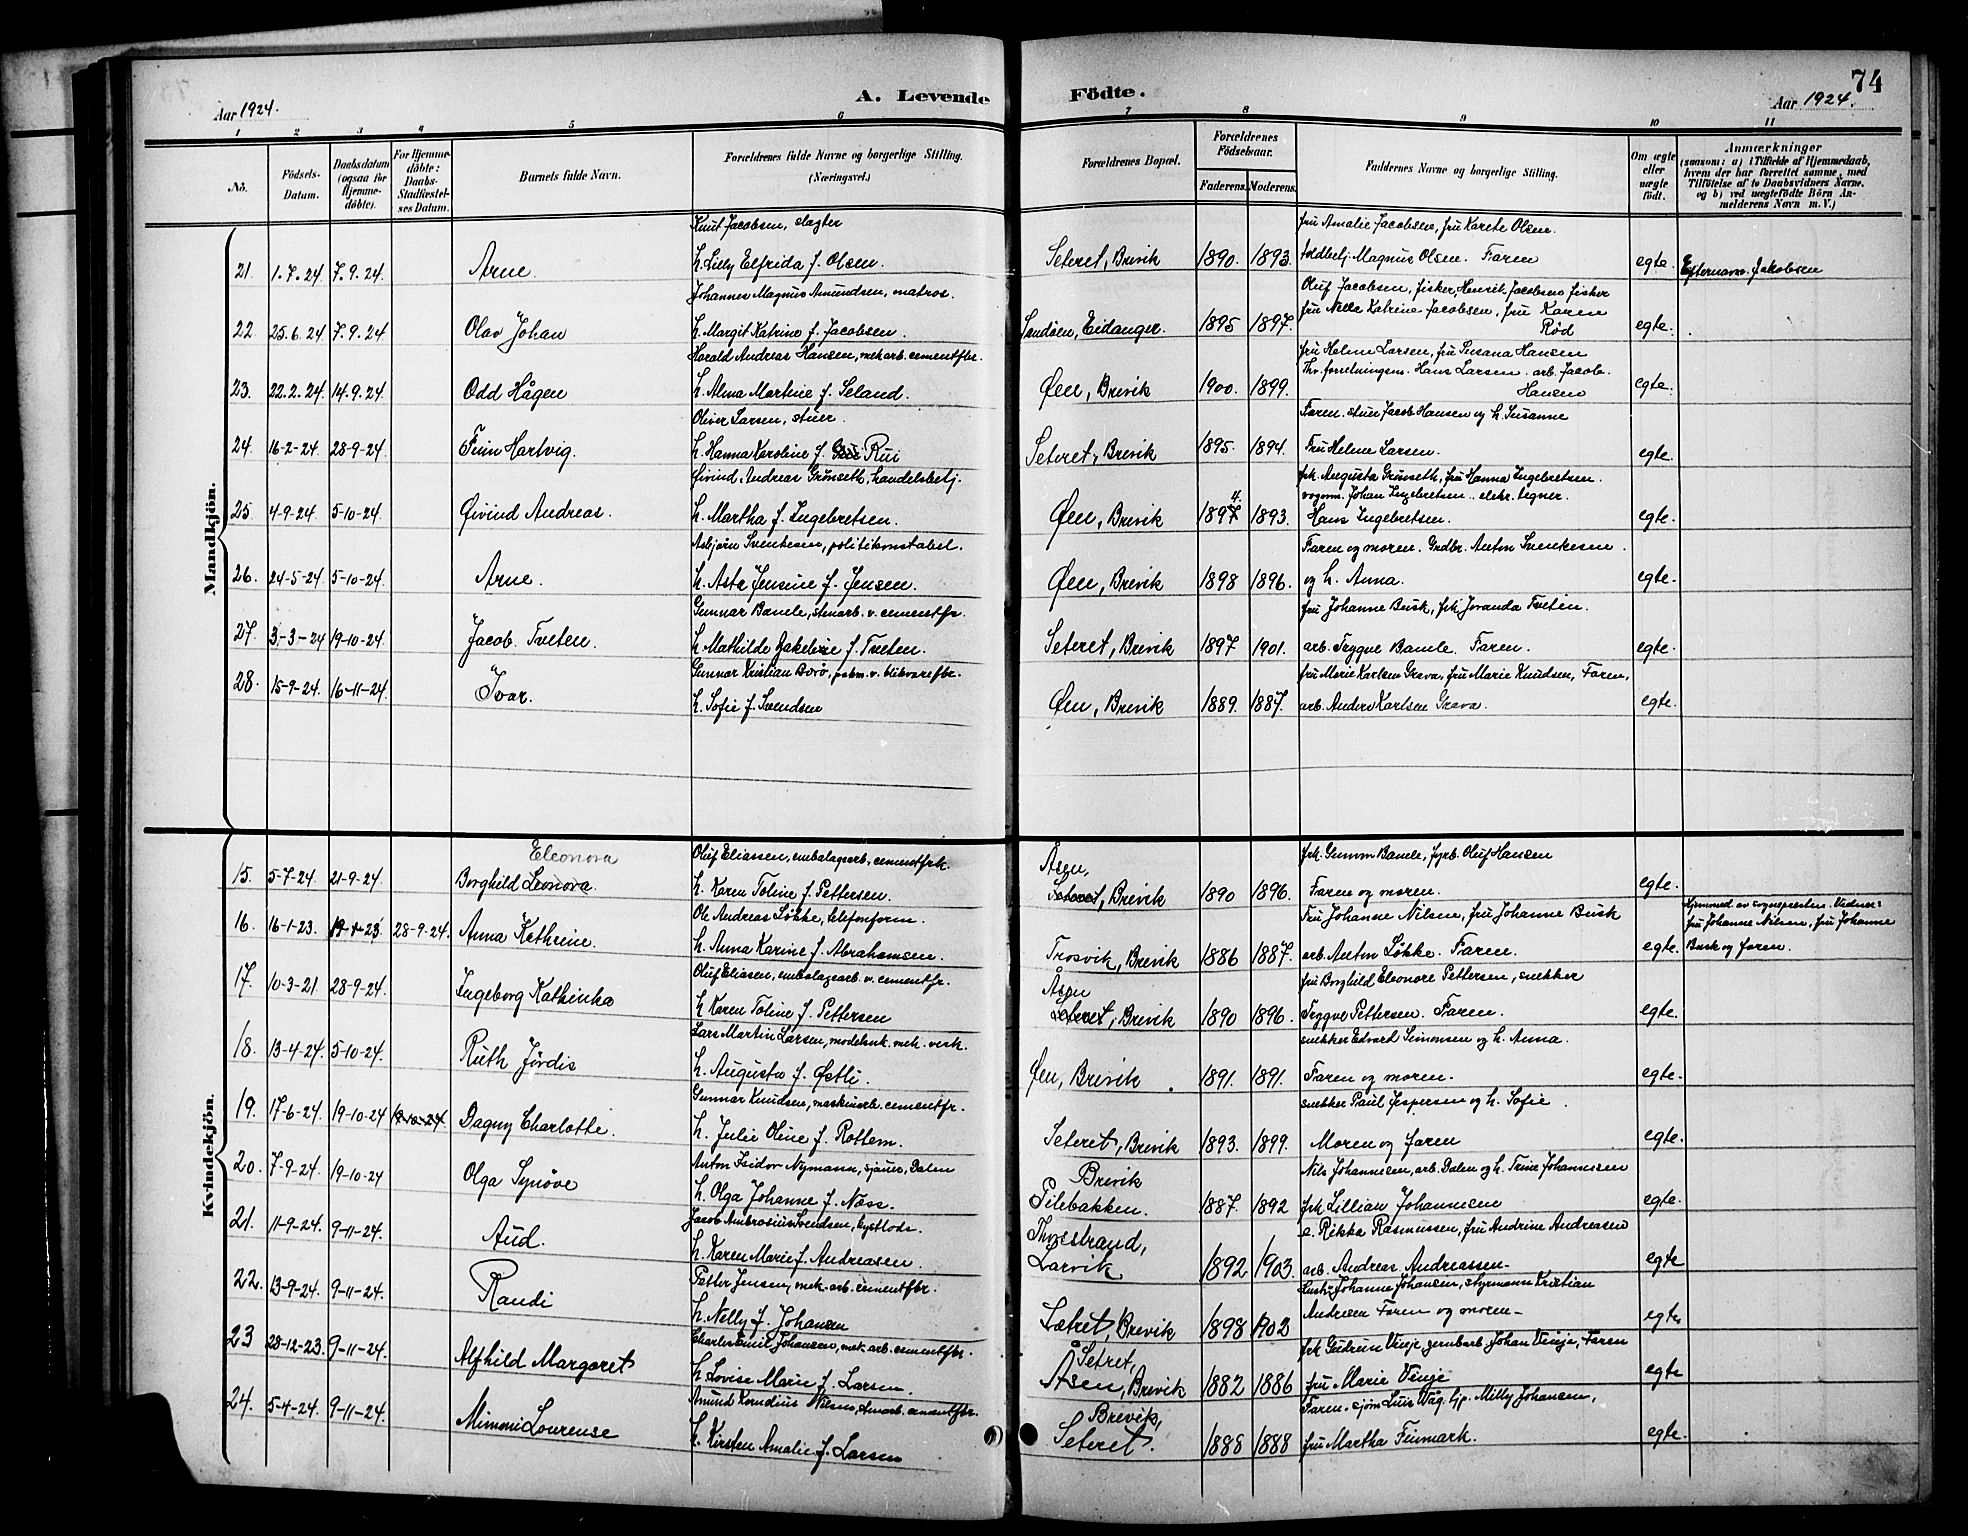 74
Aar 1924.
A. Levende Födte.
Aar 1924.
1 2 3 4 5 6 7 8 9 10 11
No.
Födsels-Datum.
Daabsdatum (ogsaa for Hjemme-döbte).
For Hjemme-döbte: Daabs-Stadfæstel-ses Datum.
Barnets fulde Navn.
Forældrenes fulde Navne og borgerlige Stilling. (Næringsvei.)
Forældrenes Bopæl.
Forældrenes Födselsaar.
Faderens. Moderens.
Faddernes Navne og borgerlige Stilling.
Om ægte eller uægte födt.
Anmærkninger
(saasom: a) i Tilfælde af Hjemmedaab, hvem der har forrettet samme, med Tilföielse af to Daabsvidners Navne, og b) ved uægtefödte Börn An-melderens Navn m. V.)
Mandkjön.
Knut Jacobsen, slagter fru Amalie Jacobsen, fru Karete Olsen.
21. 1.7.24 7.9.24. Arne. h. Lilly Elfrida f. Olsen. Seteret, Brevik 1890. 1893. toldbetj. Magnus Olsen. Faren egte. Efternavn Jakobsen
Johannes Magnus Amundsen, matros. Oluf Jacobsen, fisker, Henrik Jacobsen fisker
22. 25.6.24 7.9.24 Olav Johan h. Margit Katrine f. Jacobsen. Sandøen, Eidanger. 1895 1897. fru Nella Katrine Jacobsen, fru Karen Rød egte.
Harald Andreas Hansen, mek arb. cementfbr. fru Helene Larsen, fru Susana Hansen
23. 22.2.24 14.9.24 Odd Hågen h. Alma Martine f. Seland. Øen, Brevik 1900. 1899. Thv. forretningsm. Hans Larsen. arb. Jacob Hansen egte.
Oliver Larsen, stuer. Faren. stuer Jacob Hansen og h. Susanne
24. 16-2-24 28-9-24 Finn Hartvig. h. Hanna Karoline f. Rui Seteret, Brevik 1895. 1894. Fru Helene Larsen. egte.
Øivind Andreas Grønseth, handelsbetj. frk. Augusta Grønseth, fru Hanna Ingebretsen.
25. 4-9-24. 5-10-24. Øivind Andreas. h. Martha f. Ingebretsen. Øen, Brevik 1897 4. 1893. vognm. Johan Ingebretsen. elekr. tegner. Hans Ingebretsen. egte.
Asbjørn Svenkesen, politikonstabel. Faren og moren. Grdbr. Anton Svenkesen.
26. 24-5-24 5-10-24. Arne. h. Asta Jensine f. Jensen. Øen, Brevik 1898 1896. og h. Anna. egte.
Gunnar Bamle, stenarb. v. cementfr. fru Johanne Busk, frk. Jovanda Tveten.
27. 3-3-24 19-10-24. Jacob Tveten. h. Mathilde Jakeline f. Tveten. Seteret, Brevik 1897 1901. arb. Trygve Bamle. Faren. egte.
Gunnar Kristian Borø, v. blikvarefbr. fru Marie Karlsen Grava, fru Marie Knudsen, Faren,
28. 15-9-24. 16-11-24. Ivar. h. Sofie f. Svendsen Øen, Brevik 1889. 1887. arb. Anders Karlsen Grava. egte.
Kvindekjön.
Eleonora Oluf Eliassen, embalagearb. cementfrk. Åsen, frk. Gunvor Bamle, fyrb. Oluf Hansen
15. 5-7-24. 21-9-24. Borghild Leonora. h. Karen Toline f. Pettersen. Seteret, Brevik 1890 1896. Faren og moren. egte.
Ole Andreas Løkke, telefonform. Fru Johanne Nilsen, fru Johanne Busk Hjemmed. av sognepresten. Vidner:
16. 16-1-23. 19-1-23 28-9-24. Anna Kathrine. h. Anna Karine f. Abrahamsen. Trosvik, Brevik 1886 1887. arb. Anton Løkke. Faren. egte. fru Johanne Nilsen, fru Johanne Busk og faren.
Oluf Eliasen, embalagearb. v. cementfr. Åsen fru Borghild Eleonore Pettersen, snekker
17. 10-3-21. 28-9-24. Ingeborg Kathinka h. Karen Toline f. Pettersen Seteret, Brevik 1890 1896. Trygve Pettersen. Faren. egte.
Lars Martin Larsen, modelsnk. mek. verk. snekker Edvard Simonsen og h. Anna.
18. 13-4-24. 5-10-24. Ruth Jørdis h. Augusta f. Østli. Øen, Brevik. 1891. 1891. Faren og moren. egte.
Gunnar Knudsen, maskinarb. cementfr. snekker Paul Jespersen og h. Sofie.
19. 17-6-24. 19-10-24 19-10-24 Dagny Charlotte. h. Julie Oline f. Rotlem. Seteret, Brevik 1893. 1899. Moren og faren egte.
Anton Isidor Nymann, sjauer, Dalen Brevik Nils Johannesen, arb. Dalen og h. Trine Johannesen
20. 7-9-24. 19-10-24 Olga Synøve h. Olga Johanne f. Næss. Pilebakken. 1887. 1892 frk. Lillian Johannesen egte.
Jacob Ambrosius Svendsen, kystlods. Thorstrand, e. Rikka Rasmussen, fru Andrine Andreasen
21. 11-9-24. 9-11-24. Aud. h. Karen Marie f. Andreasen. Larvik 1892 1903. arb. Andreas Andreassen- egte
Petter Jensen, mek. arb. cementfbr. Johanne Johansen, styrmann Kristian
22. 13-9-24. 9-11-24. Randi h. Nelly f. Johansen Sætret, Brevik 1898 1902 Andresen Faren og moren- egte
Charles Emil Johansen, mek. arb. cementfbr. Setret, frk Gudrun Vinje, jernbarb. Johan Vinje, Faren
23 28-12-23. 9-11-24. Alfhild Margaret h. Lovise Marie f. Larsen. Åsen, Brevik 1882 1886 fru Marie Vinje egte
Amund Kornelius Nilsen, stenarb. cementfbr. Brevik, Faren. sjøm. Luis Wåg. tjp. Milly Johansen,
24. 5-4-24. 9-11-24. Mimmi Lourense h. Kirsten Amalie f. Larsen Seteret. 1888 1888 fru Martha Finmark. egte.